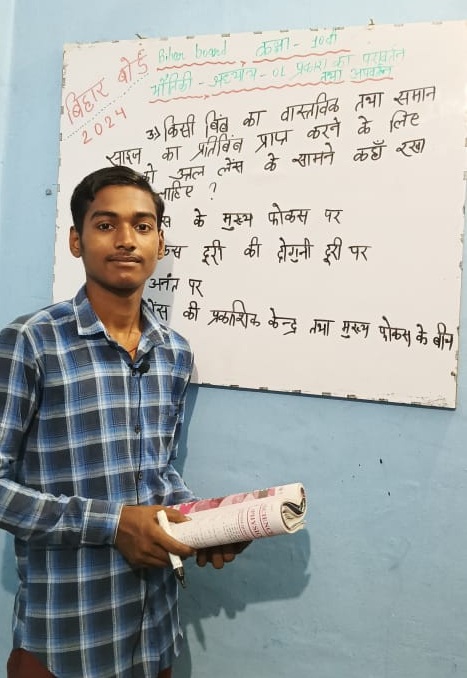 बिहार बोर्ड
2024
Bihar board कक्षा - 10वी
भौतिकी - अध्याय - 01 प्रकाश का परावर्तन
तथा अपवर्तन
3) किसी बिंब का वास्तविक तथा समान
साइज का प्रतिबिंब प्राप्त करने के लिए
को उत्तल लेंस के सामने कहाँ रखा
चाहिए ?
के मुख्य फोकस पर
दूरी की दोगुनी दूरी पर
अनंत पर
लेंस की प्रकाशिक केन्द्र तथा मुख्य फोकस के बीच